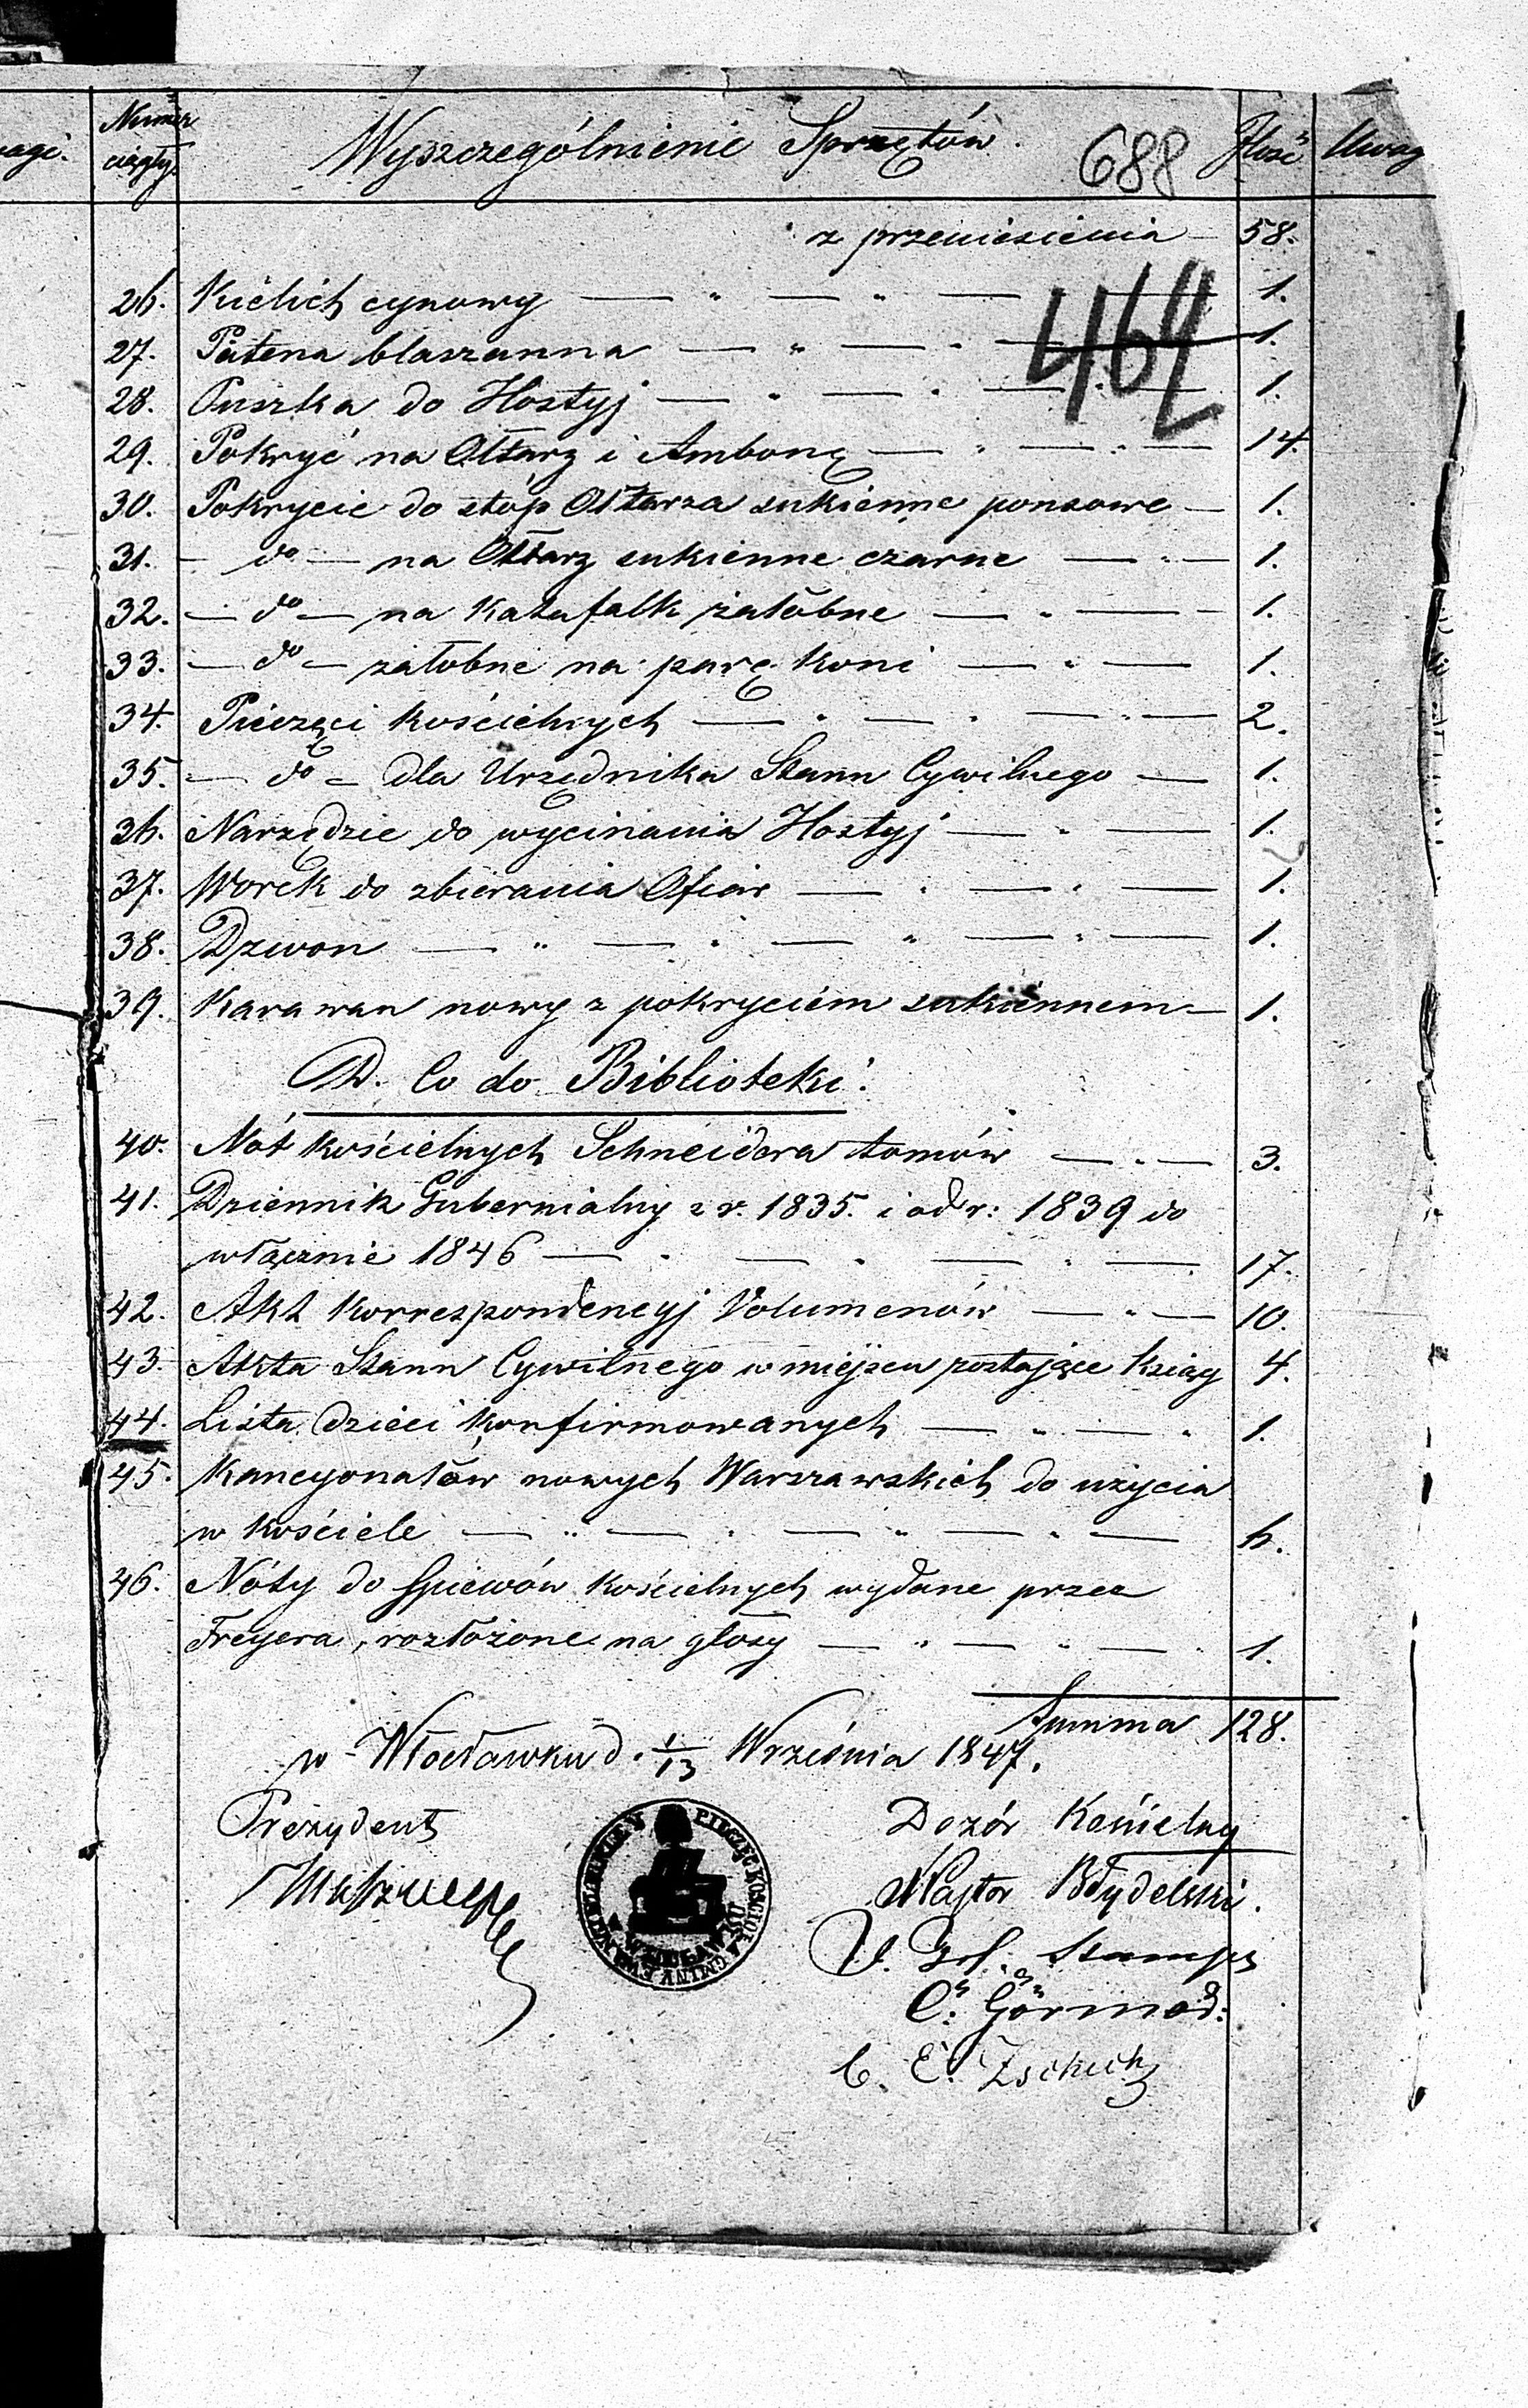 Numer
ciągły.
Wyszczególnienie Sprzętów.
688
Ilość
Uwag
z przeniesienia — 58.
464
26. Kielich cynowy — " — " — — 1.
27. Patena blaszanna — " — " — 1.
28. Puszka do Hostyj — " — " — " — 1.
29. Pokryć na Ołtarz i Ambonę — " — " — 14.
30. Pokrycie do stóp Ołtarza sukienne ponsowe — 1.
31. — do — na Ołtarz sukienne czarne — " — 1.
32. — do — na Katafalk żałobne — " — — 1.
33. — do — żałobne na parę koni — " — 1.
34. Pieczęci kościelnych — " — " — " — 2.
35. — do — dla Urzędnika Stanu Cywilnego — 1.
36. Narzędzie do wycinania Hostyj — " — 1.
37. Worek do zbierania Ofiar — " — " — 1.
38. Dzwon — " — " — " — " — 1.
39. Karawan nowy z pokryciem sukiennem — 1.
D. Co do Biblioteki.
40. Nót kościelnych Schneidera tomów — " — 3.
41. Dziennik Gubernialny z r. 1835. i od r: 1839 do
włącznie 1846 — " — " — " — 17.
42. Akt Korrespondencyj Volumenów — " — 10.
43. Akta Stanu Cywilnego w miejscu zostające ksiąg 4.
44. Lista dzieci konfirmowanych — " — " 1.
45. Kancyonałów nowych Warszawskich do użycia
w kościele — " — " — " — " — 6.
46. Nóty do śpiewów kościelnych wydane przez
Freyera, rozłożone na głosy — " — " — 1.
Summa 128.
w Włocławku d. 1/13 Września 1847.
Prezydent
Dozór Kościelny
Pastor Błydelski.
C. Görmad:
C. E. Zschich
PIECZĘĆ KOŚCIOŁA GMINY EWANGIELICKIEY
W WŁOCŁAWKU